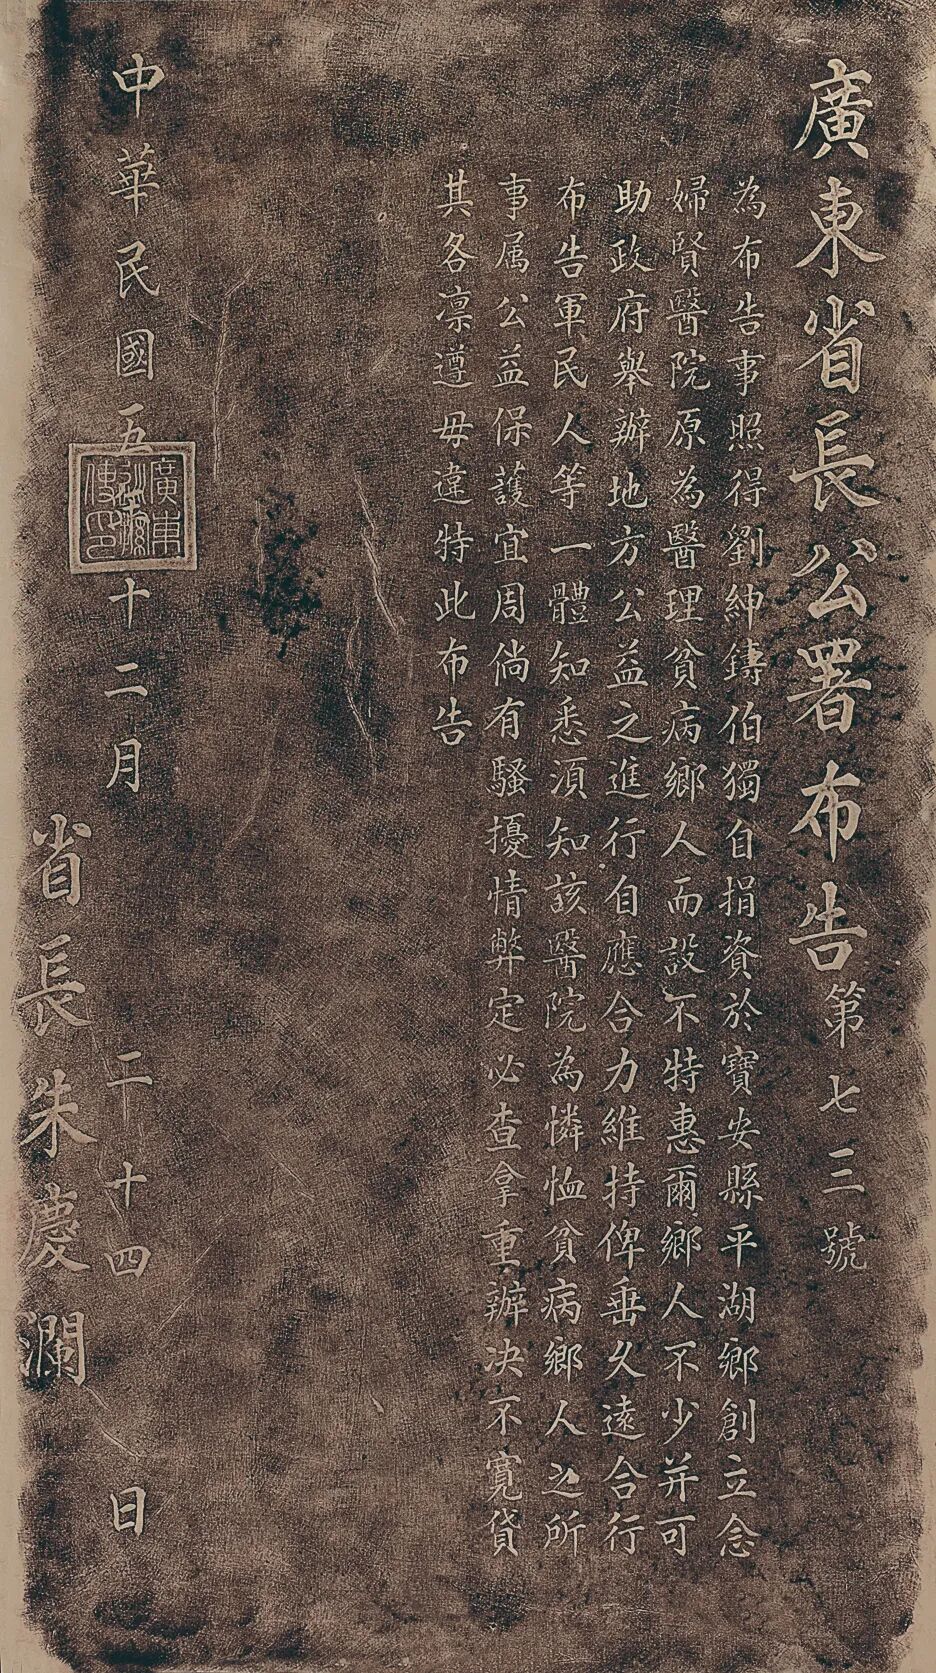 廣東省長公署布告第七三號
為布告事照得劉紳鑄伯獨自捐資於寶安縣平湖鄉創立念
婦賢醫院原為醫理貧病鄉人而設不特惠爾鄉人不少并可
助政府舉辦地方公益之進行自應合力維持俾垂久遠合行
布告軍民人等一體知悉須知該醫院為憐恤貧病鄉人之所
事属公益保護宜周倘有騷擾情弊定必查拿重辦决不寬貸
其各凛遵毋違特此布告
中華民國五 十二月 二十四 日
省長朱慶瀾